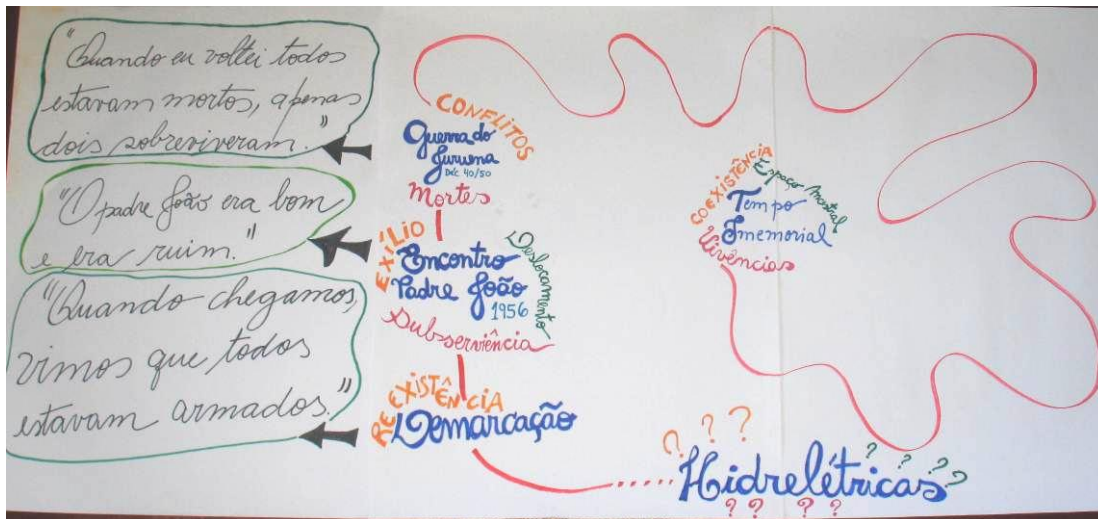 "Quando eu voltei todos
estavam mortos, apenas
dois sobreviveram."
"O padre João era bom
e era ruim."
"Quando chegamos,
vimos que todos
estavam armados."
CONFLITOS
Guerra do
Juruena
Déc 40/50
Mortes
EXÍLIO
Encontro
Padre João
1956
Deslocamento
Subserviência
RE EXISTÊNCIA
Demarcação
COEXISTÊNCIA
Espaço
Tempo
Imemorial
Vivências
? ? ?
..... Hidrelétricas
? ? ? ?
? ? ? ?